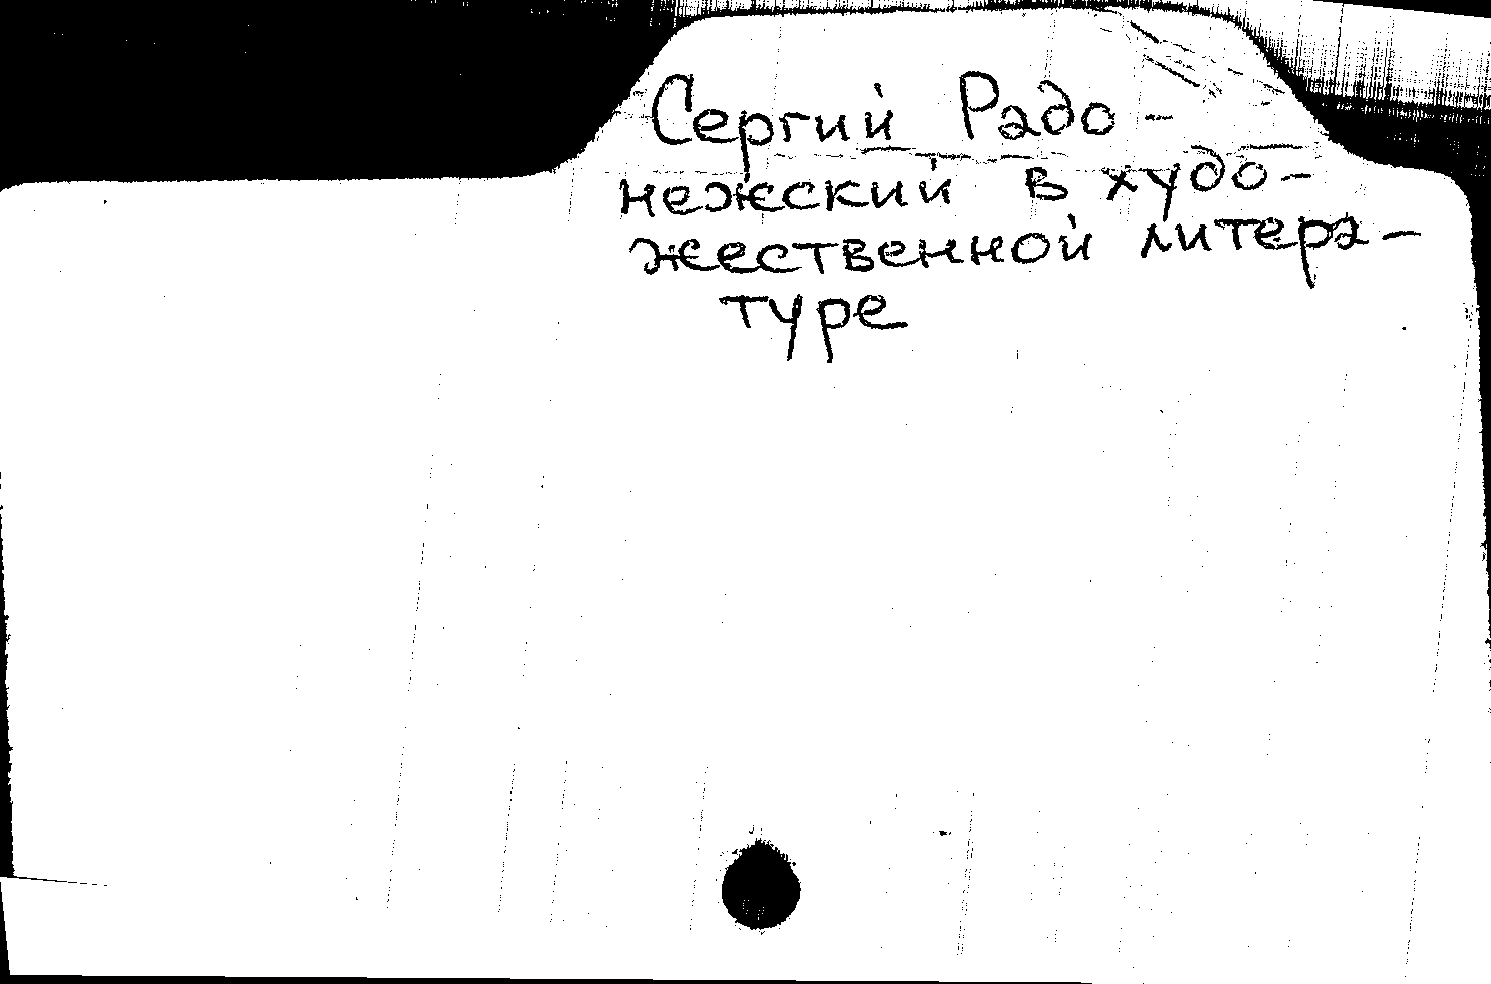 Сергий Радо-
нежский в худо-
жественной литера-
туре